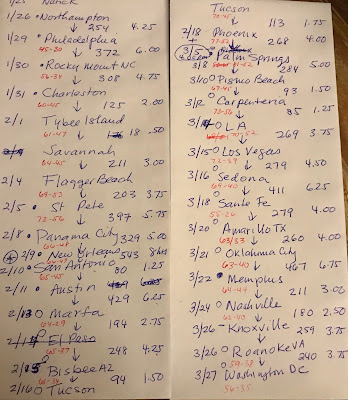 1/25 Nanck
1/26 Northampton
254 4.25
1/29 Philadelphia
45-30
372 6.00
1/30 Rocky Mount NC
56-34
308 4.75
1/31 Charleston
60-45
125 2.00
2/1 Tybee Island
61-47
18 .50
Savannah
64-45
211 3.00
2/4 Flagger Beach
69-53
203 3.75
2/5 St Pete
72-56
397 5.75
2/8 Panama City
329 5.00
2/9 New Orleans
543 8hrs
2/10 San Antonio
65-45
80 1.25
2/11 Austin
429 6.25
2/13 Marfa
64-29
194 2.75
El Paso
65-37
248 4.25
2/15 Bisbee AZ
94 1.50
2/16 Tucson
Tucson
113 1.75
2/18 Phoenix
268 4.00
3/5 Palm Springs
3/8
284 5.00
3/10 Pismo Beach
93 1.50
3/12 Carpenteria
85 1.25
LA
269 3.75
3/15 Los Vegas
72-39
279 4.50
3/16 Sedona
411 6.25
3/18 Sante Fe
279 4.00
3/20 Amarillo TX
63/33
260 4.00
3/21 Oklahoma City
63-40
467 6.75
3/22 Memphis
64-44
211 3.00
3/24 Nashville
180 2.50
3/26 Knoxville 259 3.75
3/26 Roanoke VA
240 3.75
3/27 Washington DC
56-35